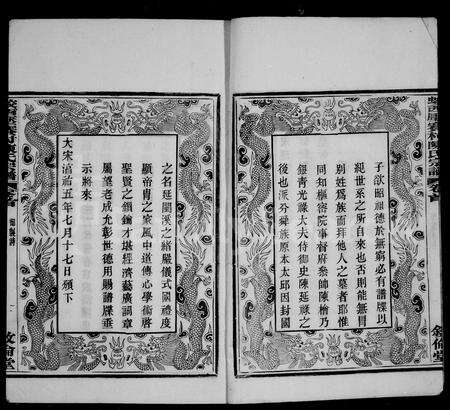 子欲昭祖德於無窮必有譜牒以
紀世系之所自來也否則能無
別姓為族而拜他人之墓者耶惟
同知樞密院事督府叅帥陳檜乃
銀青光祿大夫侍御史陳延祿之
後也派分舜族原本太邱因封國
之名延關溪之緒嚴儀式圍禮度
願帝胄之家風中道傳心學衞啓
聖賢之鎖鑰才堪經濟藝廣詞章
屬望老成允彰世德用賜譜牒垂
示將來
大宋淳祐五年七月十七日頒下
敘倫堂
敘倫堂